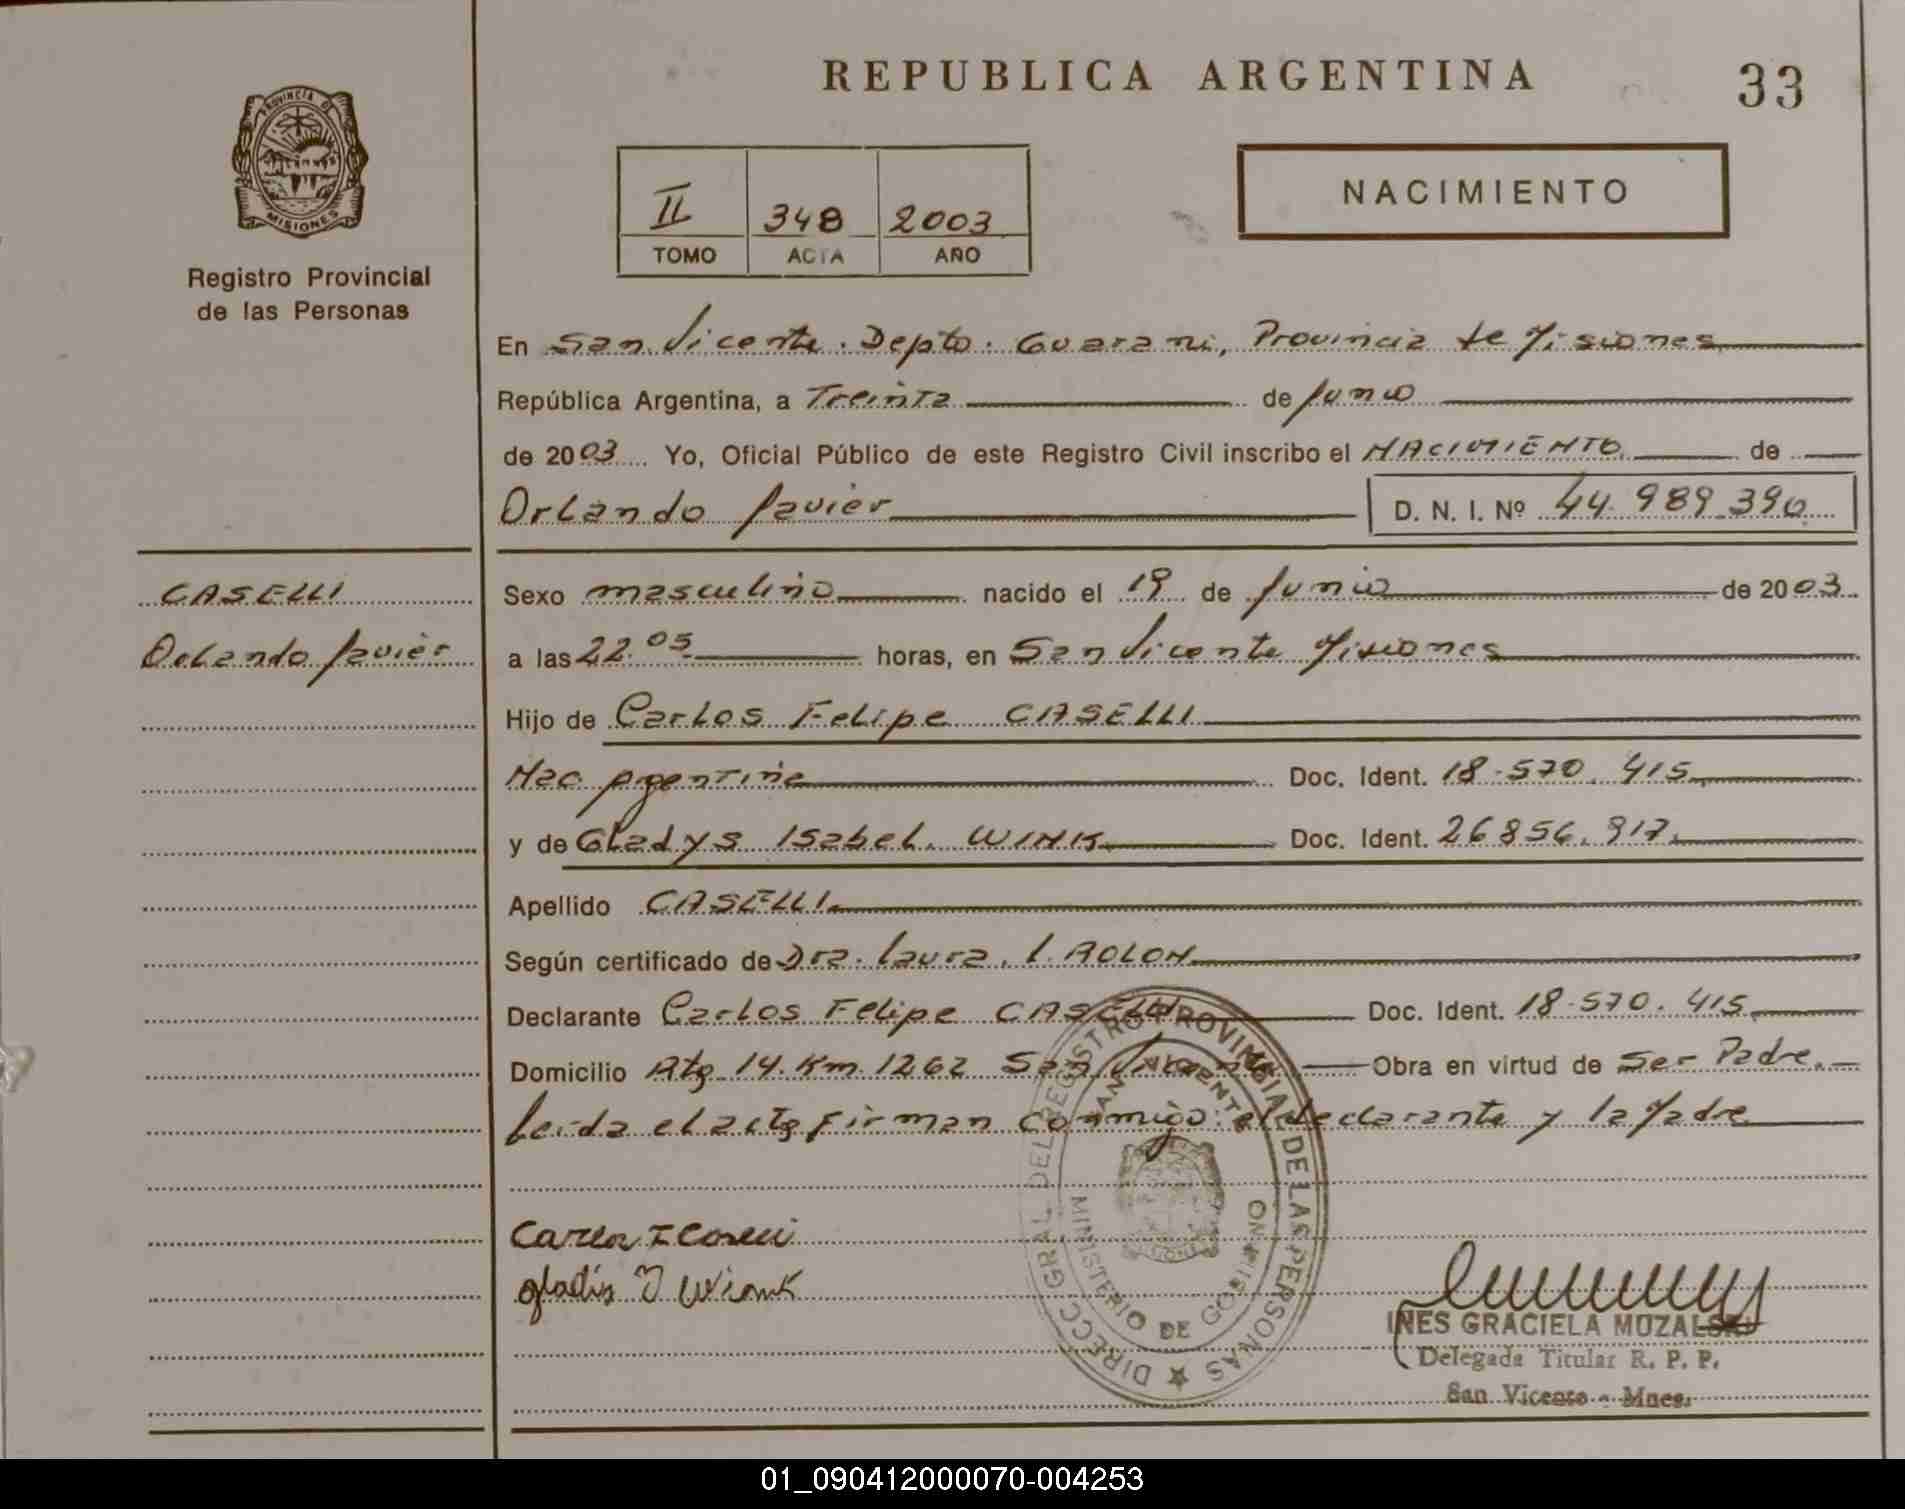 REPUBLICA ARGENTINA
33
PROVINCIA DE
MISIONES
Registro Provincial
de las Personas
II 348 2003
TOMO ACTA AÑO
NACIMIENTO
En San Vicente. Depto. Guarani, Provincia de Misiones
República Argentina, a Treinta de Junio
de 2003 Yo, Oficial Público de este Registro Civil inscribo el NACIMIENTO de
Orlando Javier D. N. I. Nº 44.989.390
CASELLI
Orlando Javier
Sexo masculino nacido el 19 de Junio de 2003
a las 22.05 horas, en San Vicente Misiones
Hijo de Carlos Felipe CASELLI
Nac. Argentina Doc. Ident. 18.570.415
y de Gladys Isabel. WINK Doc. Ident. 26.856.917
Apellido CASELLI
Según certificado de Dra. Laura. L. ROLON
Declarante Carlos Felipe CASELLI Doc. Ident. 18.570.415
Domicilio Rta. 14. Km. 1262 San Vicente Obra en virtud de Ser Padre.
Leida el acta firman conmigo: el declarante y la Madre
DIRECC. GRAL. DEL REGISTRO PROVINCIAL DE LAS PERSONAS
SAN VICENTE
MINISTERIO DE GOBIERNO
gladis I Wink
INES GRACIELA MUZALSKI
Delegada Titular R. P. P.
San Vicente - Mnes.
01_090412000070-004253